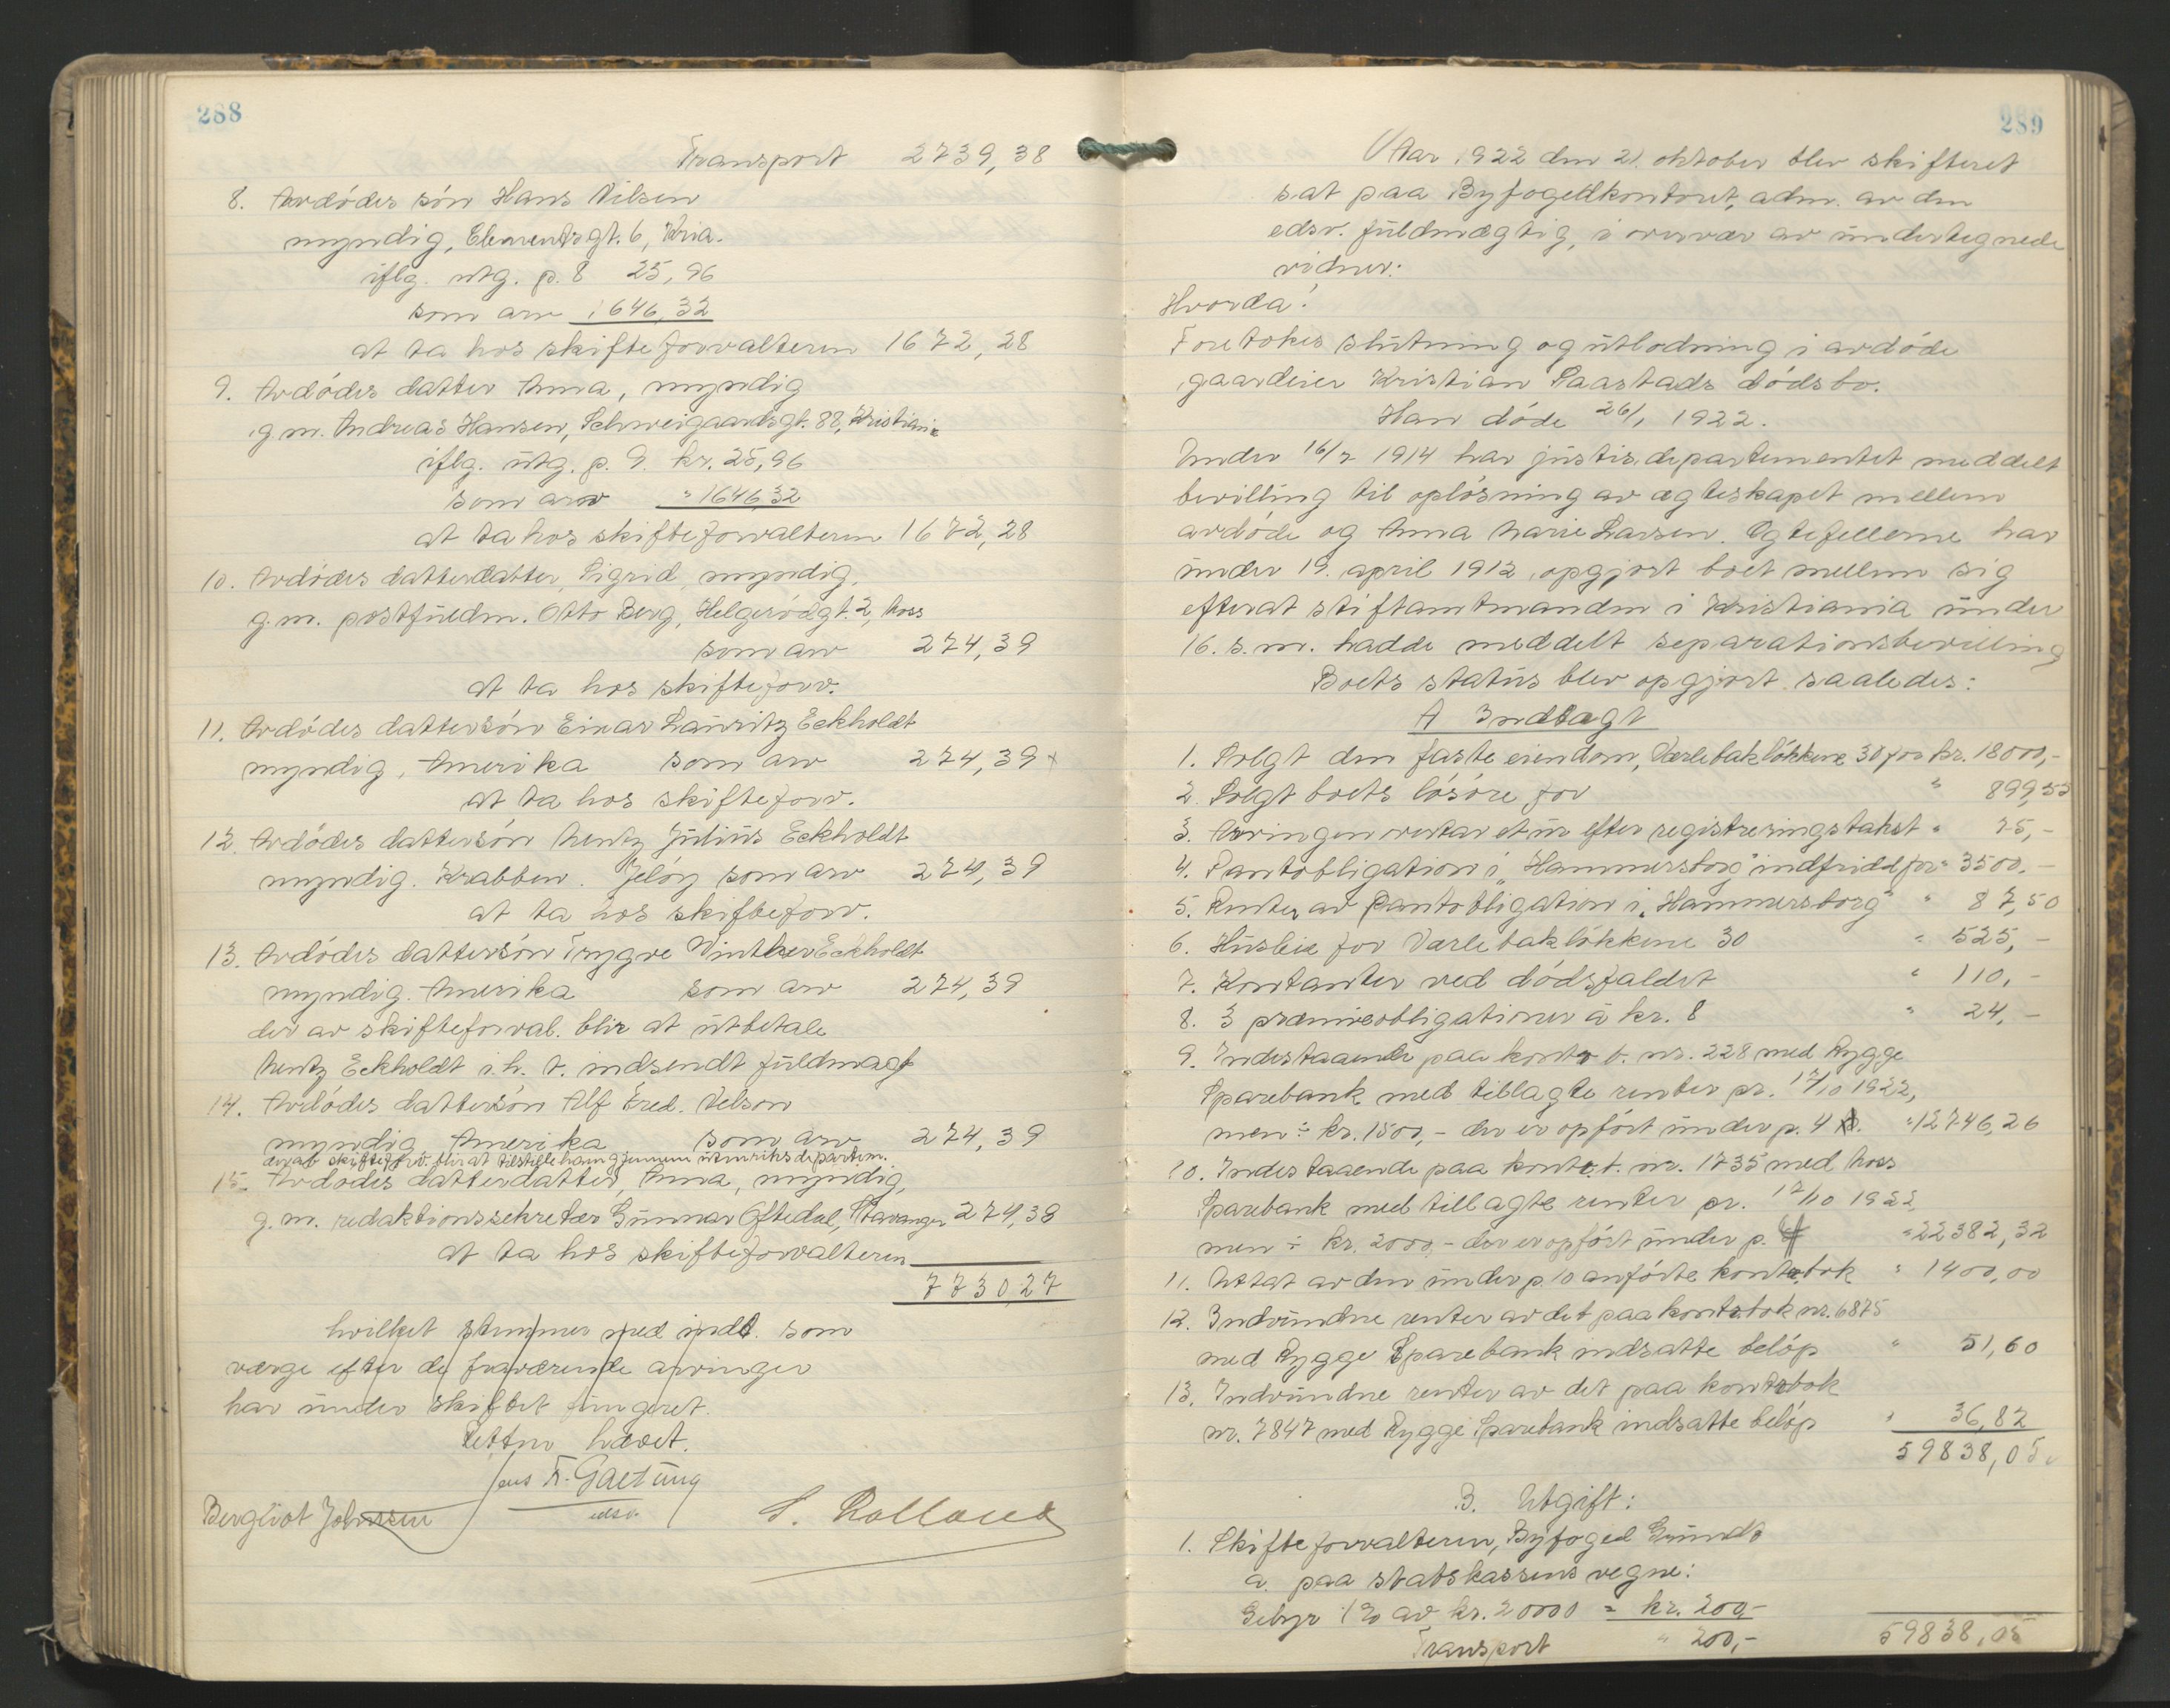 288
Transport 2739,38
8. Avdødes søn Hans Nilsen
myndig, Elementsgt. 6, Kria.
iflg. utg. p. 8 25,96
som arv 1646,32
at ta hos skifteforvalteren 1672,28
9. Avdødes datter Anna, myndig
g. m. Andreas Hansen, Schweigaardsgt. 88, Kristiania
iflg. utg. p. 9. kr. 25,96
som arv " 1646,32
at ta hos skifteforvalteren 1672,28
10. Avdødes datterdatter, Sigrid, myndig,
g. m. postfuldm. Otto Berg, Helgerødgt. 2, Moss
som arv 274,39
at ta hos skifteforv.
11. Avdødes dattersøn Einar Lauritz Eckholdt
myndig, Amerika som arv 274,39 x
at ta hos skifteforv.
12. Avdødes dattersøn Mentz Julius Eckholdt
myndig. Krabben. Jeløy som arv 274,39
at ta hos skifteforv.
13. Avdødes dattersøn Trygve Winther Eckholdt
myndig. Amerika som arv 274,39
der av skifteforval. blir at utbetale
Mentz Eckholdt i. h. t. indsendt fuldmagt
14. Avdødes dattersøn Alf Fred. Nelson
myndig Amerika som arv 274,39
der av skifteforv. blir at tilstille ham gjennem utenriksdepartem.
15. Avdødes datterdatter, Anna, myndig,
g. m. redaktionssekretær Gunnar Oftedal, Stavanger 274,39
at ta hos skifteforvalteren
7730,27
hvilket stemmer med indt. som
værge efter de fraværende arvinger
har under skiftet fungeret.
Retten hævet.
Jens F. Gaetung
edsv.
Bergliot Johnssen S. Rolland
289
Aar 1922 den 21. oktober blev skifteret
sat paa Byfogedkontoret, adm. av den
edsv. fuldmægtig, i overvær av undertegnede
vidner:
Hvorda:
Foretokes slutning og utlodning i avdøde
gaardeier Kristian Saastads dødsbo.
Han døde 26/1 1922.
Under 16/7 1914 har justisdepartementet meddelt
bevilling til opløsning av ægteskapet mellem
avdøde og Anna Marie Larsen. Egtefellerne har
under 19. april 1912 opgjort boet mellem sig
efterat stiftamtmanden i Kristiania under
16. s. m. hadde meddelt separationsbevilling
Boets status blev opgjort saaledes:
A Indtægt
1. Solgt den faste eiendom, Værlebakløkkene 30 for kr. 18000,-
2. Solgt boets løsøre for " 899,55
3. Arvingen uttar et ur efter registreringstakst " 75,-
4. Pantobligation i "Hammersborg" indfridd for " 3500.-
5. Renter av Pantobligation i "Hammersborg" " 87,50
6. Husleie for Værlebakløkkene 30 " 525,-
7. Kontanter ved dødsfaldet " 110,-
8. 3 præmieobligationer à kr. 8 " 24,-
9. Indestaaende paa kontr. b. nr. 228 med Rygge
Sparebank med tillagte renter pr. 17/10 1922,
men ÷ kr. 1500,- der er opført under p. 4 " 12746,26
10. Indestaaende paa kontr. b. nr. 1735 med Moss
Sparebank med tillagte renter pr. 17/10 1922
men ÷ kr. 2000,- der er opført under p. 4 " 22382,32
11. Uttat av den under p. 10 anførte kontrabok " 1400,00
12. Indvundne renter av det paa kontrabok nr. 6875
med Rygge Sparebank indsatte beløp " 51,60
13. Indvundne renter av det paa kontrabok
nr. 7847 med Rygge Sparebank indsatte beløp " 36,82
59838,05
B. Utgift:
1. Skifteforvalteren, Byfoged Grundt
a. paa statskassens vegne:
Gebyr 1% av kr. 20000 = kr. 200,-
Transport " 200,- 59838,05